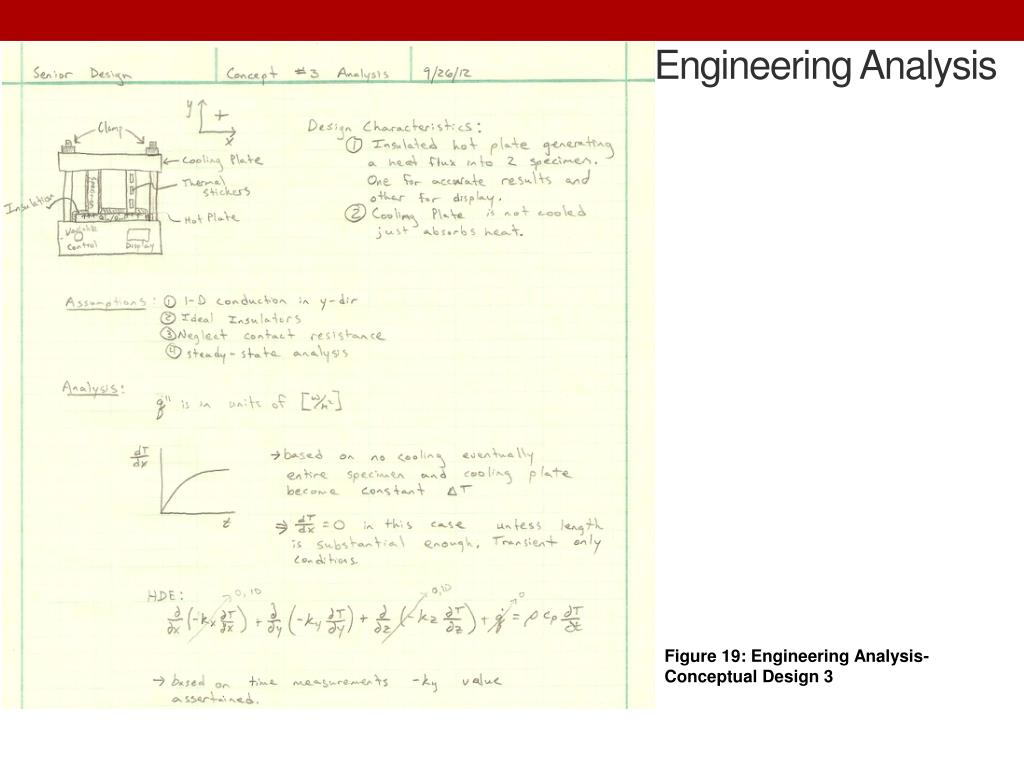 Engineering Analysis
Senior Design
Concept #3 Analysis
9/26/12
Clamp
y
+
x
Cooling Plate
Thermal
stickers
Insulation
Hot Plate
Variable
Control
Display
Design Characteristics:
① Insulated hot plate generating
a heat flux into 2 specimen.
One for accurate results and
other for display.
② Cooling Plate is not cooled
just absorbs heat.
Assumptions: ① 1-D conduction in y-dir
② Ideal Insulators
③ Neglect contact resistance
④ steady-state analysis
Analysis:
q" is in units of [W/m²]
dT/dx
t
→ based on no cooling eventually
entire specimen and cooling plate
become constant ΔT
⇒ dT/dx = 0 in this case unless length
is substantial enough. Transient only
conditions.
HDE:
0, 1D
0, 1D
0
∂/∂x (-kx ∂T/∂x) + ∂/∂y (-ky ∂T/∂y) + ∂/∂z (-kz ∂T/∂z) + q̇ = ρ cp ∂T/∂t
→ based on time measurements -ky value
assertained.
Figure 19: Engineering Analysis-
Conceptual Design 3